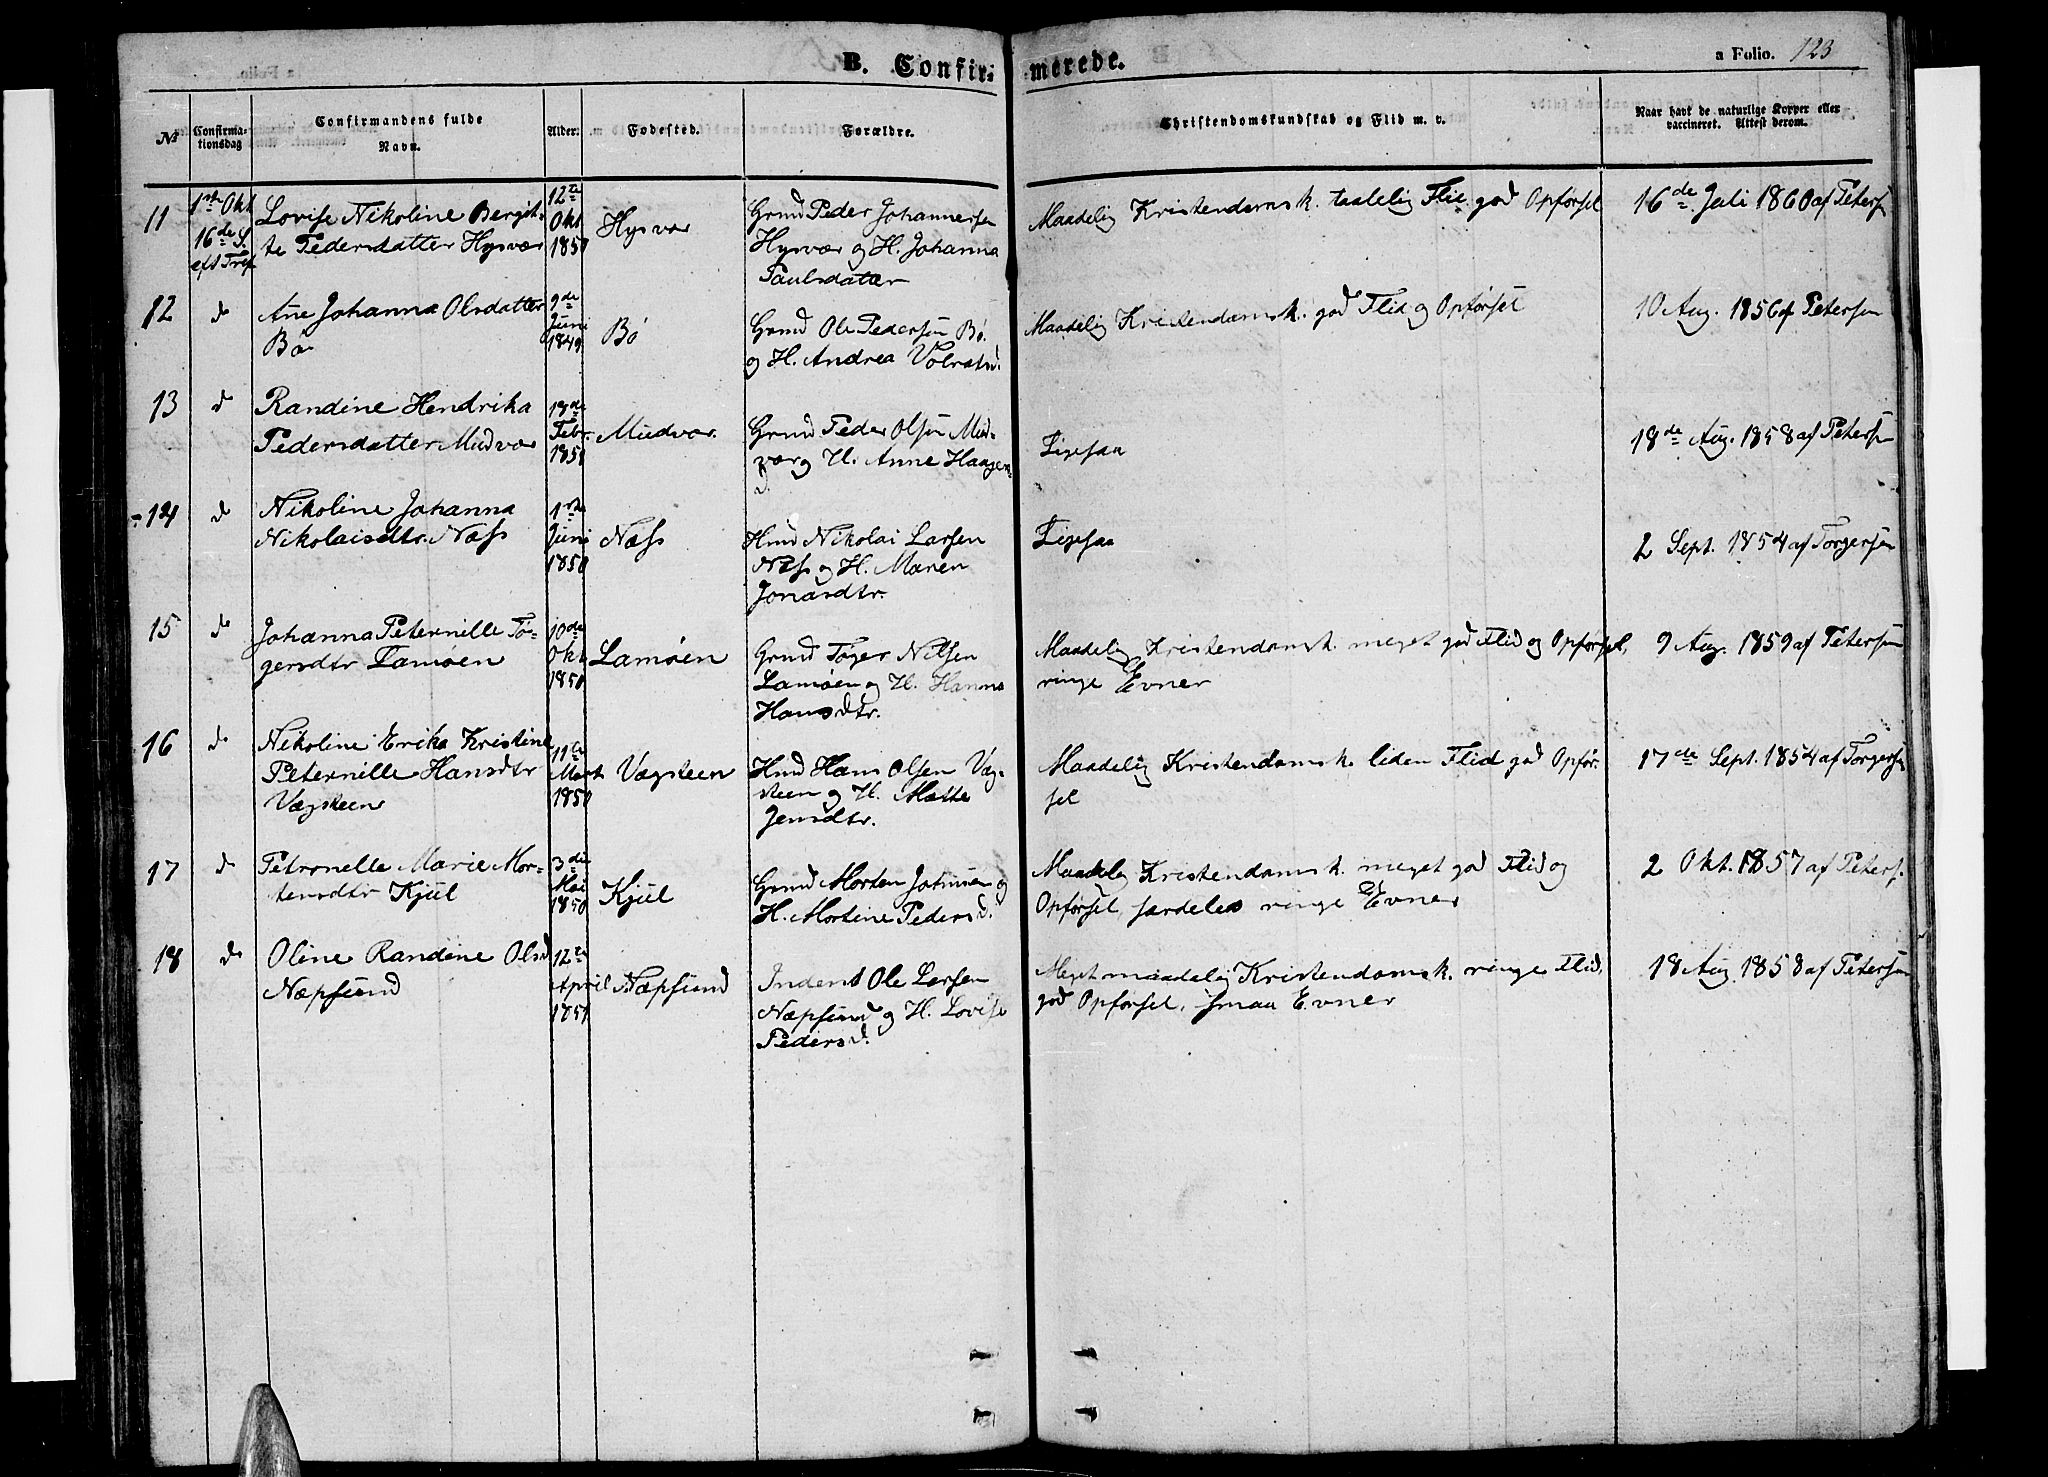 B. Confirmerede.
a Folio. 123
№
Confirmationsdag
Confirmandens fulde Navn.
Alder.
Fødested.
Forældre.
Christendomskundskab og Flid m. v.
Naar havt de naturlige Kopper eller vaccineret. Attest derom.
11
1ste Okt
16de S.
eft Tref
Lovise Nikoline Bergit-
te Pedersdatter Hysvær
12te
Okt
1850
Hysvær
Grmd Peder Johannersen
Hysvær og H. Johanna
Paulsdatter
Maadelig Kristendomsk. taalelig Flid god Opførsel
16de Juli 1860 af Petersen
12
do
Ane Johanna Olsdatter
Bø
9de
Juni
1849
Bø
Grmd Ole Pedersen Bø
og H. Andrea Volratsd.
Maadelig Kristendomsk. god Flid og Opførsel
10 Aug. 1856 af Petersen
13
do
Randine Hendrika
Pedersdatter Mudvær
Febr.
1850
Mudvær.
Grmd Peder Olsen Mud-
vær og H. Anne Haagens
d.
Ligesaa
18de Aug. 1858 af Petersen
14
do
Nikoline Johanna
Nikolaisdtr. Næss
1ste
Juni
1850
Næss
Hmd Nikolai Larsen
Næss og H. Maren
Jonasdtr.
Ligesaa
2 Sept. 1854 af Torgersen
15
do
Johanna Peternille Tø-
gersdtr Lamøen
10de
Okt
1850
Lamøen
Grmd Tøger Nilsen
Lamøen og H. Hanna
Hansdtr.
Maadelig Kristendomsk. meget god Flid og Opførsel,
ringe Evner
9 Aug. 1859 af Petersen
16
do
Nikoline Erika Kristine
Peternille Hansdtr
Vægsteen
11te
Mart
1850
Vægsteen
Hmd Hans Olsen Væg-
steen og H. Mætte
Jensdtr.
Maadelig Kristendomsk. liden Flid god Opfør-
sel
17de Sept. 1854 af Torgersen
17
do
Petronelle Marie Mor-
tensdtr Kjul
3die
Mai
1850
Kjul
Grmd Morten Johnsen og
H. Mortine Pedersd.
Maadelig Kristendomsk. meget god Flid og
Opførsel, særdeles ringe Evner
2 Okt. 1857 af Peters.
18
do
Oline Randine Olsd
Næpsund
12te
April
1850
Næpsund
Inderst Ole Larsen
Næpsund og H. Lovise
Pedersd.
Meget maadelig Kristendomsk. ringe Flid,
god Opførsel, smaa Evner
18 Aug. 1858 af Petersen